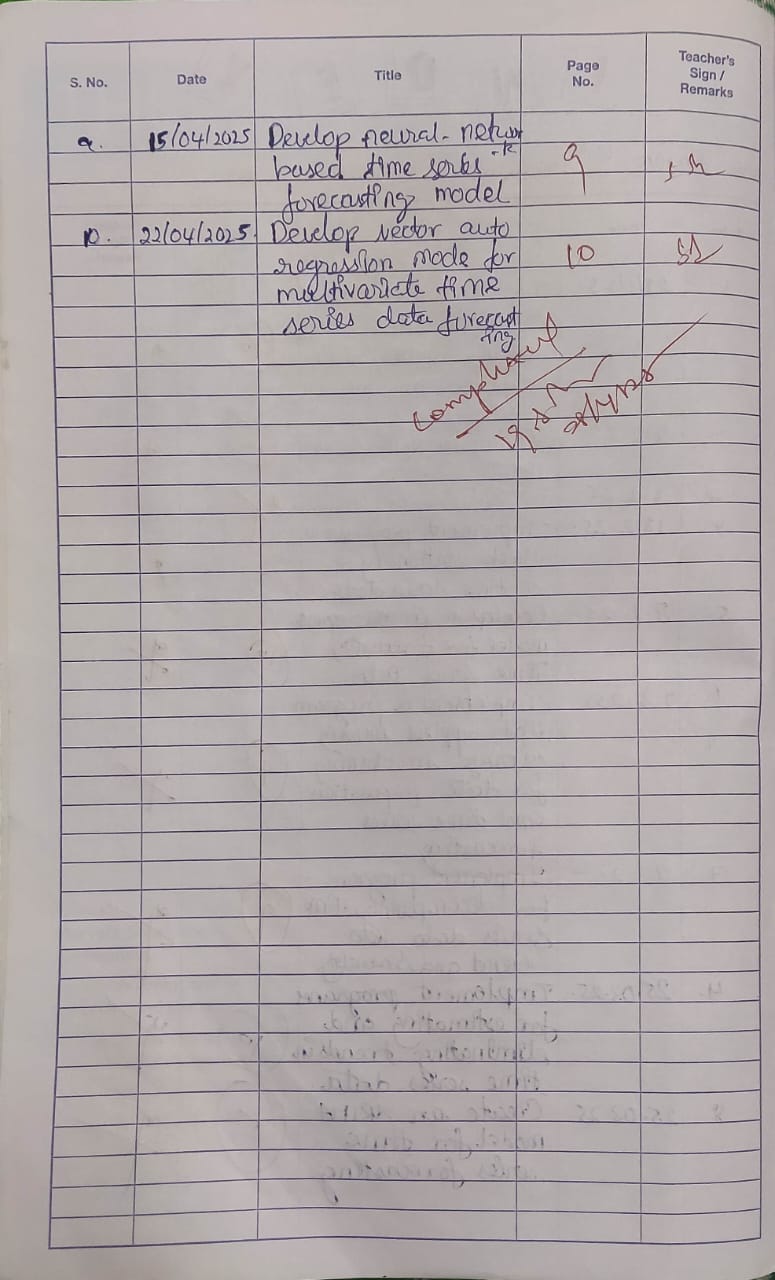 S. No. Date Title Page No. Teacher's Sign / Remarks
9. 15/04/2025 Develop neural-networ
-k
based time series 9
forecasting model
10. 22/04/2025. Develop vector auto
regression mode for 10
multivariate time
series data forecast
ing